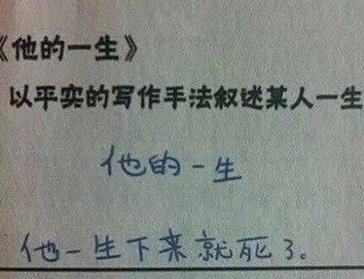 《他的一生》
以平实的写作手法叙述某人一生
他的一生
他一生下来就死了。